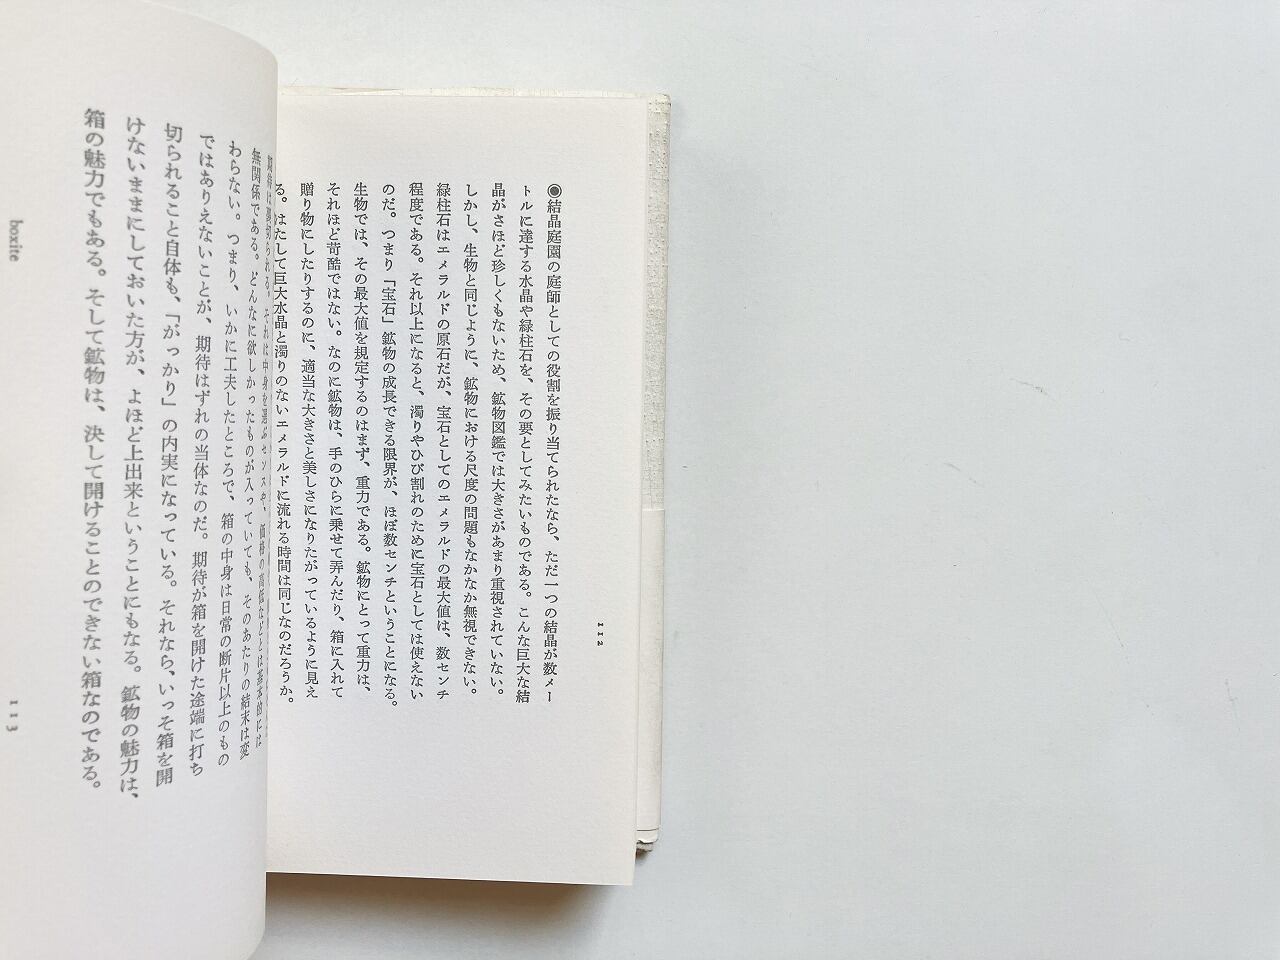 ◉結晶庭園の庭師としての役割を振り当てられたなら、ただ一つの結晶が数メー
トルに達する水晶や緑柱石を、その要としてみたいものである。こんな巨大な結
晶がさほど珍しくもないため、鉱物図鑑では大きさがあまり重視されていない。
しかし、生物と同じように、鉱物における尺度の問題もなかなか無視できない。
緑柱石はエメラルドの原石だが、宝石としてのエメラルドの最大値は、数センチ
程度である。それ以上になると、濁りやひび割れのために宝石としては使えない
のだ。つまり「宝石」鉱物の成長できる限界が、ほぼ数センチということになる。
生物では、その最大値を規定するのはまず、重力である。鉱物にとって重力は、
それほど苛酷ではない。なのに鉱物は、手のひらに乗せて弄んだり、箱に入れて
贈り物にしたりするのに、適当な大きさと美しさになりたがっているように見え
る。はたして巨大水晶と濁りのないエメラルドに流れる時間は同じなのだろうか。
112
期待は裏切られる。それは中身を選ぶセンスや、価格の高低などとは基本的には
無関係である。どんなに欲しかったものが入っていても、そのあたりの結末は変
わらない。つまり、いかに工夫したところで、箱の中身は日常の断片以上のもの
ではありえないことが、期待はずれの当体なのだ。期待が箱を開けた途端に打ち
切られること自体も、「がっかり」の内実になっている。それなら、いっそ箱を開
けないままにしておいた方が、よほど上出来ということにもなる。鉱物の魅力は、
箱の魅力でもある。そして鉱物は、決して開けることのできない箱なのである。
boxite
113